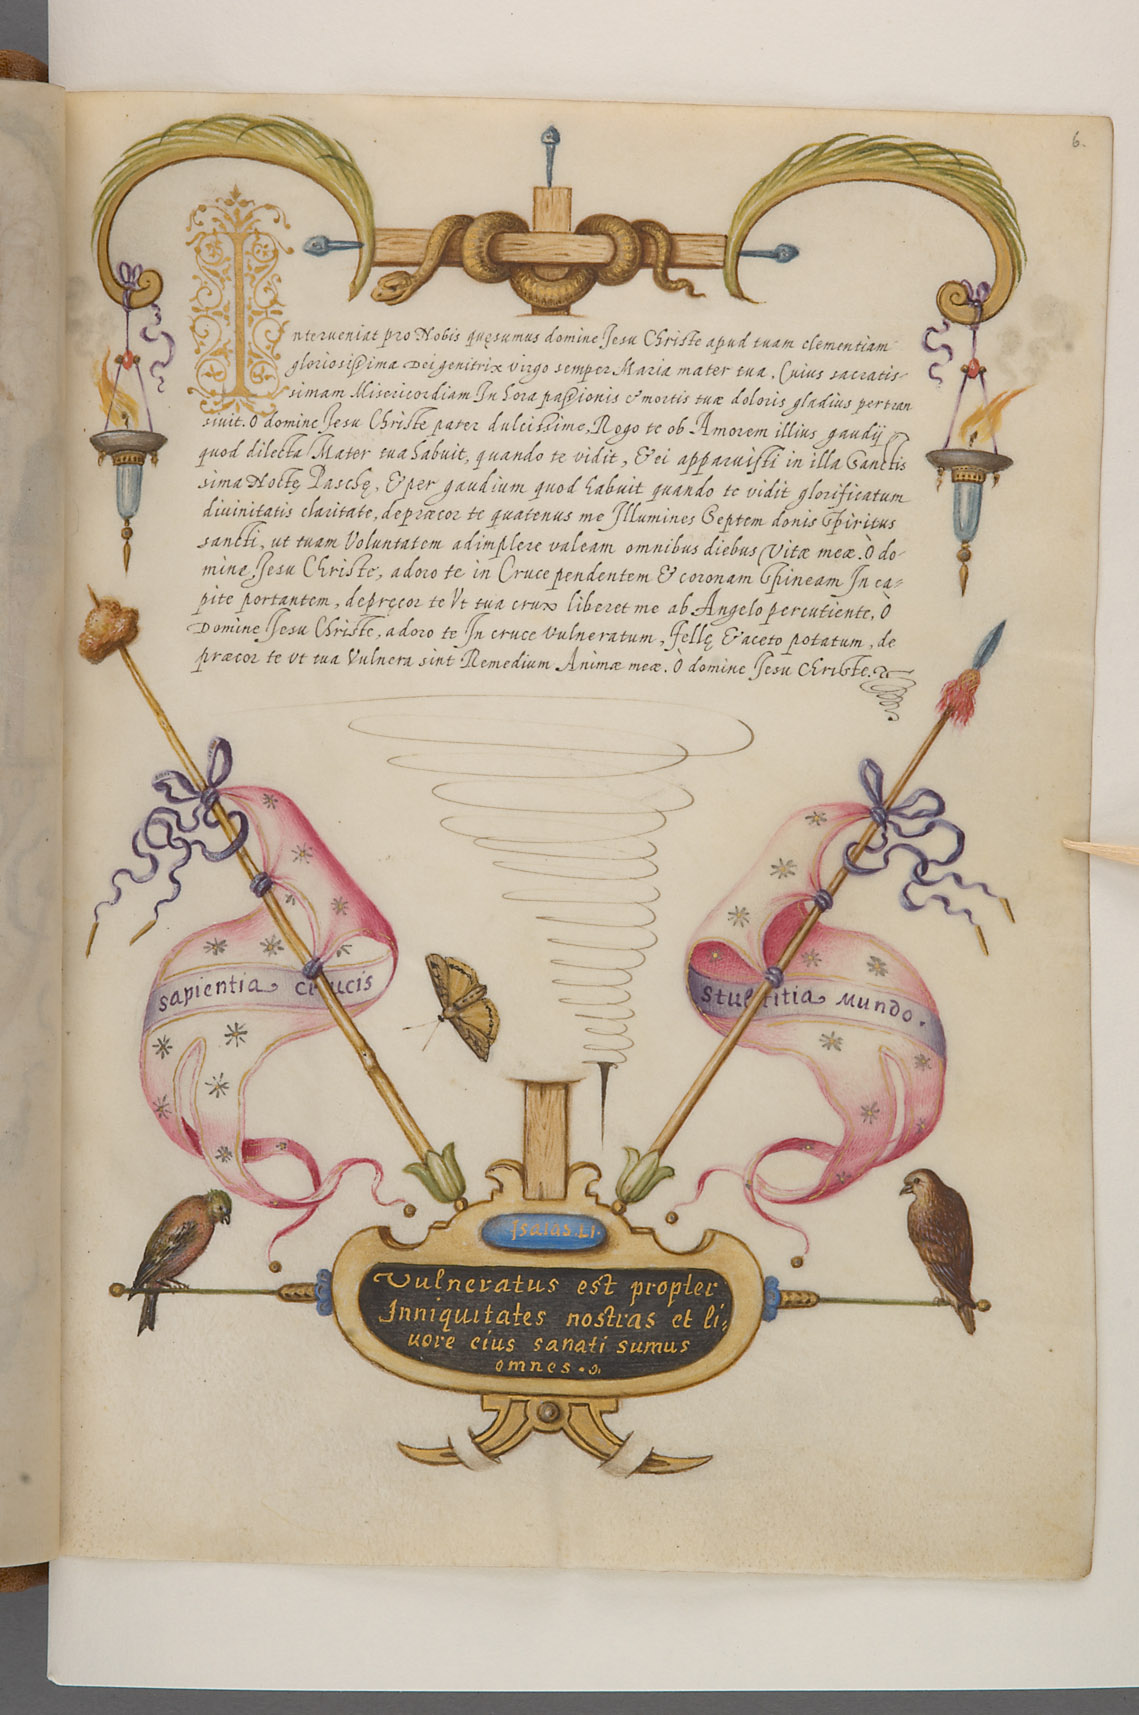 6.
Interueniat pro Nobis quęsumus domine Jesu Christe apud tuam clementiam
gloriosissima Dei genitrix virgo semper Maria mater tua, Cuius sacratis-
simam Misericordiam In hora passionis & mortis tuæ doloris gladius pertran
siuit. O domine Jesu Christe pater dulcissime, Rogo te ob Amorem illius gaudij
quod dilecta Mater tua habuit, quando te vidit, & ei apparuisti in illa Sanctis
sima Noctę Paschę, & per gaudium quod habuit quando te vidit glorificatum
diuinitatis claritate, depræcor te quatenus me Illumines Septem donis Spiritus
sancti, ut tuam Voluntatem adimplere valeam omnibus diebus Vitæ meæ. O do-
mine, Jesu Christe, adoro te in Cruce pendentem & coronam Spineam In ca-
pite portantem, depręcor te Vt tua crux liberet me ab Angelo percutiente, O
Domine Jesu Christe, adoro te In cruce Vulneratum, fellę & aceto potatum, de
præcor te vt tua Vulnera sint Remedium Animæ meæ. O domine Jesu Christe.
sapientia crucis
stultitia mundo.
Isaias. LI.
Vulneratus est propter
Inniquitates nostras et li,
uore eius sanati sumus
omnes.